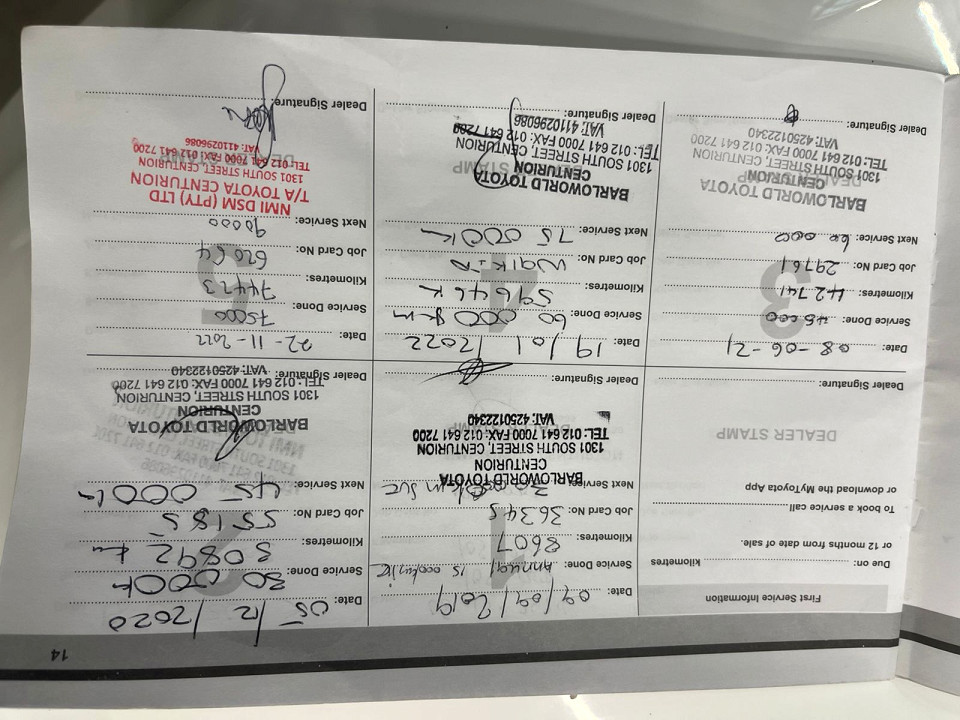 14
First Service Information
Due on: Kilometres
or 12 months from date of sale.
To book a service call
or download the MyToyota App
DEALER STAMP
Dealer Signature:
1
Date: 09/09/2019
Service Done: Annual 15 000km
Kilometres: 8607
Job Card No: 36345
Next Service: 30 000km SVC
BARLOWORLD TOYOTA
CENTURION
1301 SOUTH STREET, CENTURION
TEL: 012 641 7000 FAX: 012 641 7200
VAT: 4250122340
Dealer Signature:
2
Date: 05/12/2020
Service Done: 30 000k
Kilometres: 30892 km
Job Card No: 55185
Next Service: 45 000k
BARLOWORLD TOYOTA
CENTURION
1301 SOUTH STREET, CENTURION
TEL: 012 641 7000 FAX: 012 641 7200
VAT: 4250122340
Dealer Signature:
3
Date: 08-06-21
Service Done: 45000
Kilometres: 42741
Job Card No: 29761
Next Service: 60 000
DEALER STAMP
BARLOWORLD TOYOTA
CENTURION
1301 SOUTH STREET, CENTURION
TEL: 012 641 7000 FAX: 012 641 7200
VAT: 4250122340
Dealer Signature:
4
Date: 19/01/2022
Service Done: 60 000km
Kilometres: 59646k
Job Card No: Walk-in
Next Service: 75 000k
BARLOWORLD TOYOTA
CENTURION
1301 SOUTH STREET, CENTURION
TEL: 012 641 7000 FAX: 012 641 7200
VAT: 4110296086
Dealer Signature:
5
Date: 22-11-2022
Service Done: 75000
Kilometres: 74473
Job Card No: 62064
Next Service: 90000
NMI DSM (PTY) LTD
T/A TOYOTA CENTURION
1301 SOUTH STREET, CENTURION
TEL: 012 641 7000 FAX: 012 641 7200
VAT: 4110296086
Dealer Signature: